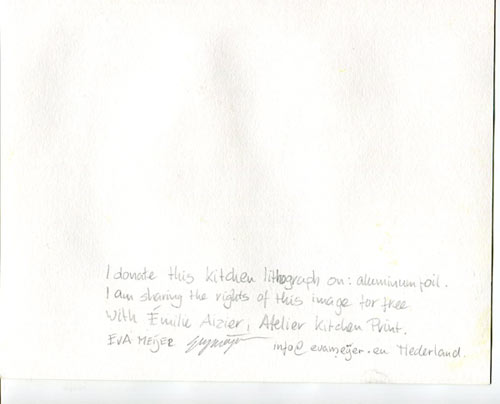 I donate this kitchen lithograph on: aluminium foil.
I am sharing the rights of this image for free
with Émilie Aizier, Atelier Kitchen Print.
EVA MEIJER info@evameijer.eu Nederland.